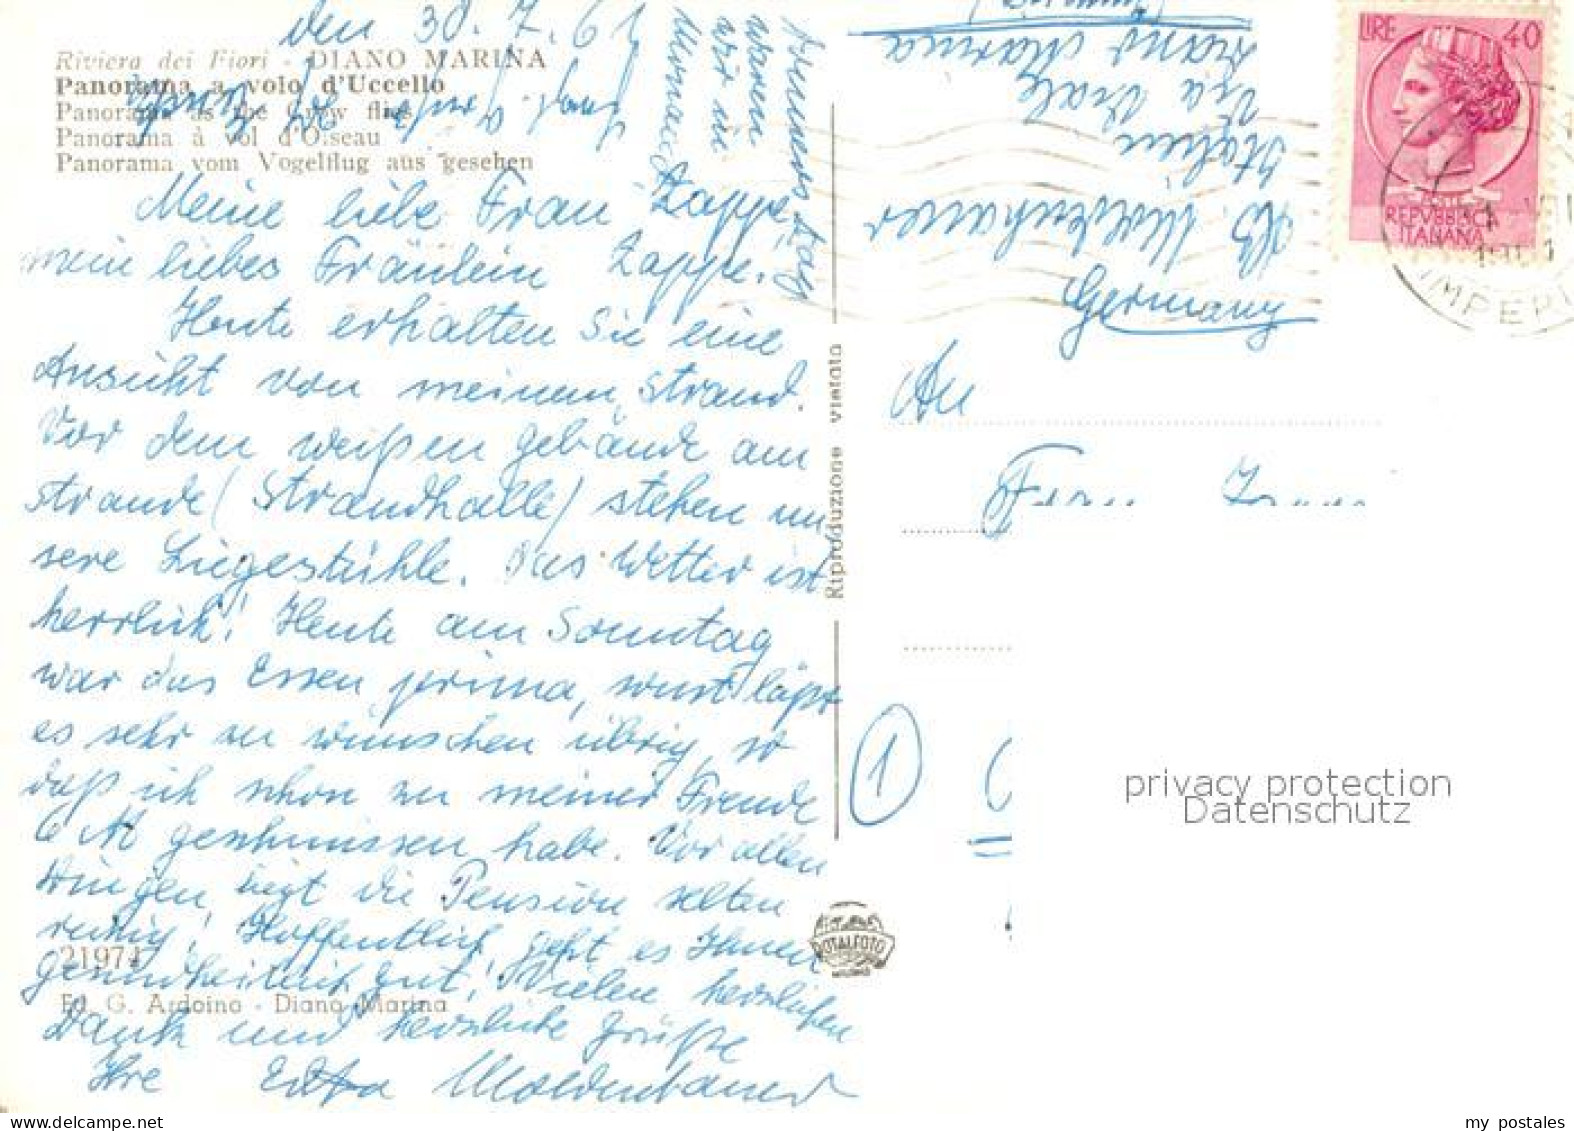 den 30.7.61
Riviera dei Fiori - DIANO MARINA
Panorama a volo d'Uccello
Panorama as the Crow flies
Panorama à vol d'Oiseau
Panorama vom Vogelflug aus gesehen
Meine liebe Frau Zappe,
mein liebes Fräulein Zappe.
Heute erhalten Sie eine
Ansicht von meinem Strand.
Vor dem weißen Gebäude am
Strande (Strandhalle) stehen un
sere Liegestühle. Das Wetter ist
herrlich! Heute am Sonntag
war das Essen prima, sonst läßt
es sehr zu wünschen übrig, so
daß ich schon zu meiner Freude
6 M geschmissen habe. Vor allen
Dingen liegt die Pension selten
ruhig! Hoffentlich geht es Ihnen
gesundheitlich gut! Vielen herzlichen
Dank und herzliche Grüße
Ihre Edta Moldenhauer
21974
Ed. G. Ardoino - Diano Marina
waren
wir in
Monaco
Riproduzione vietata
ROTALFOTO
MILANO
Diano Marina
Via Viale
Italien
Moldenhauer
Germany
LIRE 40
POSTE
REPVBBLICA
ITALIANA
IMPERI
An
Frau
1
privacy protection
Datenschutz
my postales